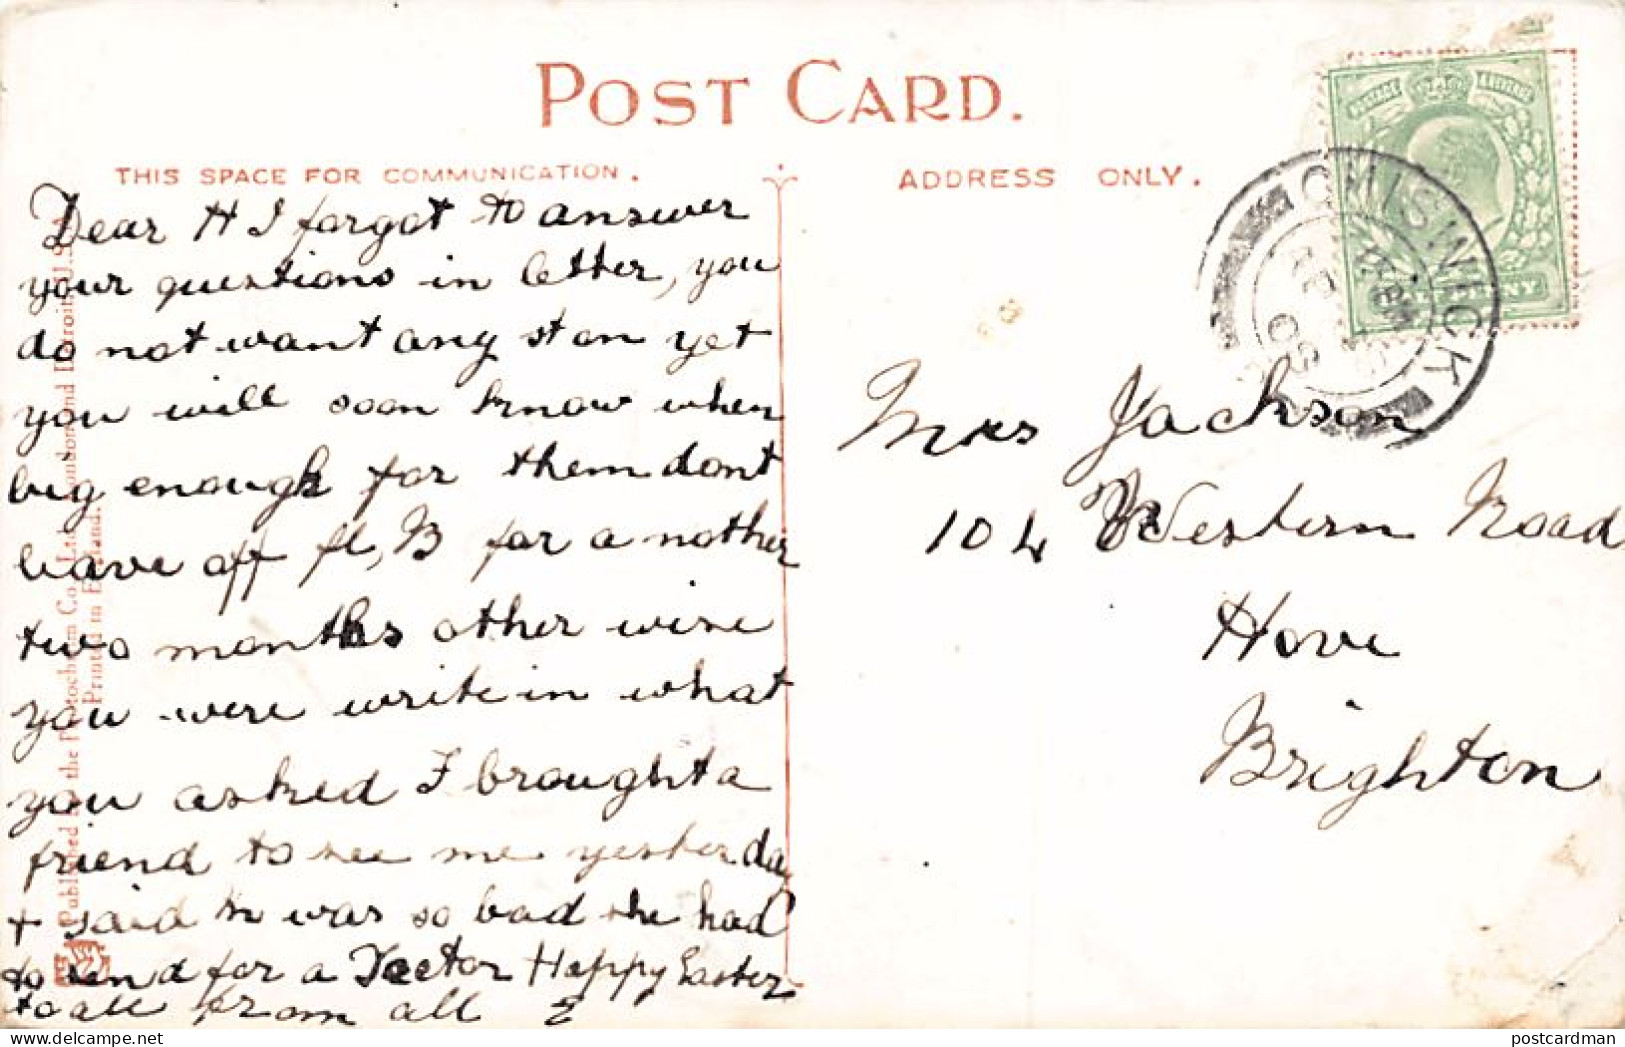 POST CARD.
THIS SPACE FOR COMMUNICATION.
ADDRESS ONLY.
Dear H I forgot to answer
your questions in letter, you
do not want any st on yet
you will soon know when
big enough for them dont
leave off fl, B for a nother
two months other wise
you were write in what
you asked I brought a
friend to see me yesterday
+ said he was so bad she had
to send for a Doctor Happy Easter
to all from all E
Mrs Jackson
104 Western Road
Hove
Brighton
CHISWICK
POSTAGE REVENUE
HALFPENNY
Published by the Photochrom Co., Ltd., London and Detroit, U.S.A.
Printed in England.
postcardman